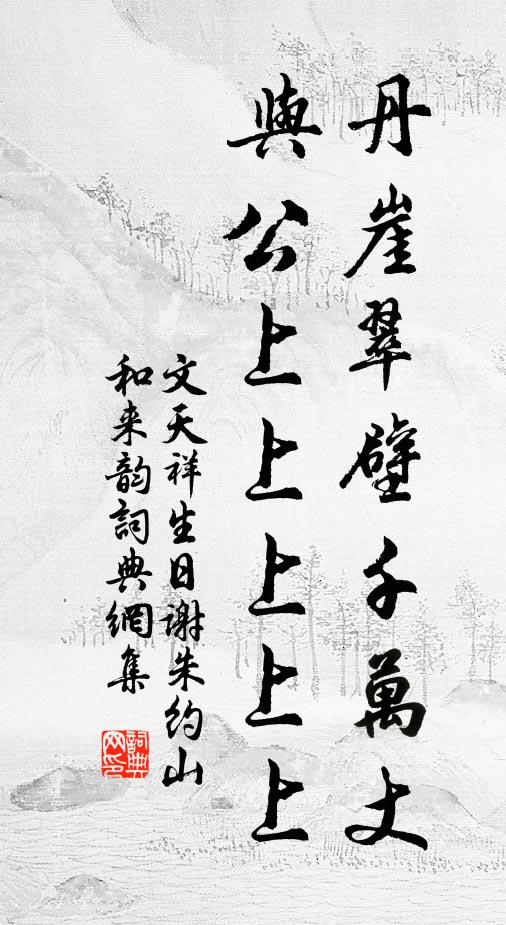 丹崖翠壁千萬丈
與公上上上上上
文天祥生日谢朱约山
和来韵詞典網集
詞典网印